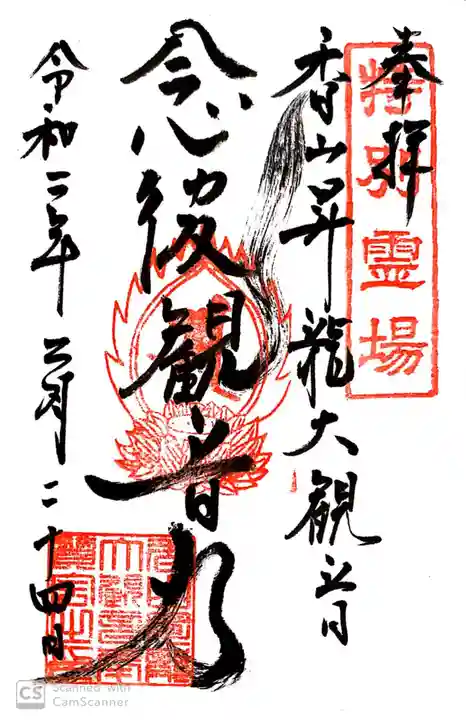 奉拝
特別霊場
香山昇龍大観音
念彼観音力
令和三年二月二十四日
CS Scanned with
CamScanner